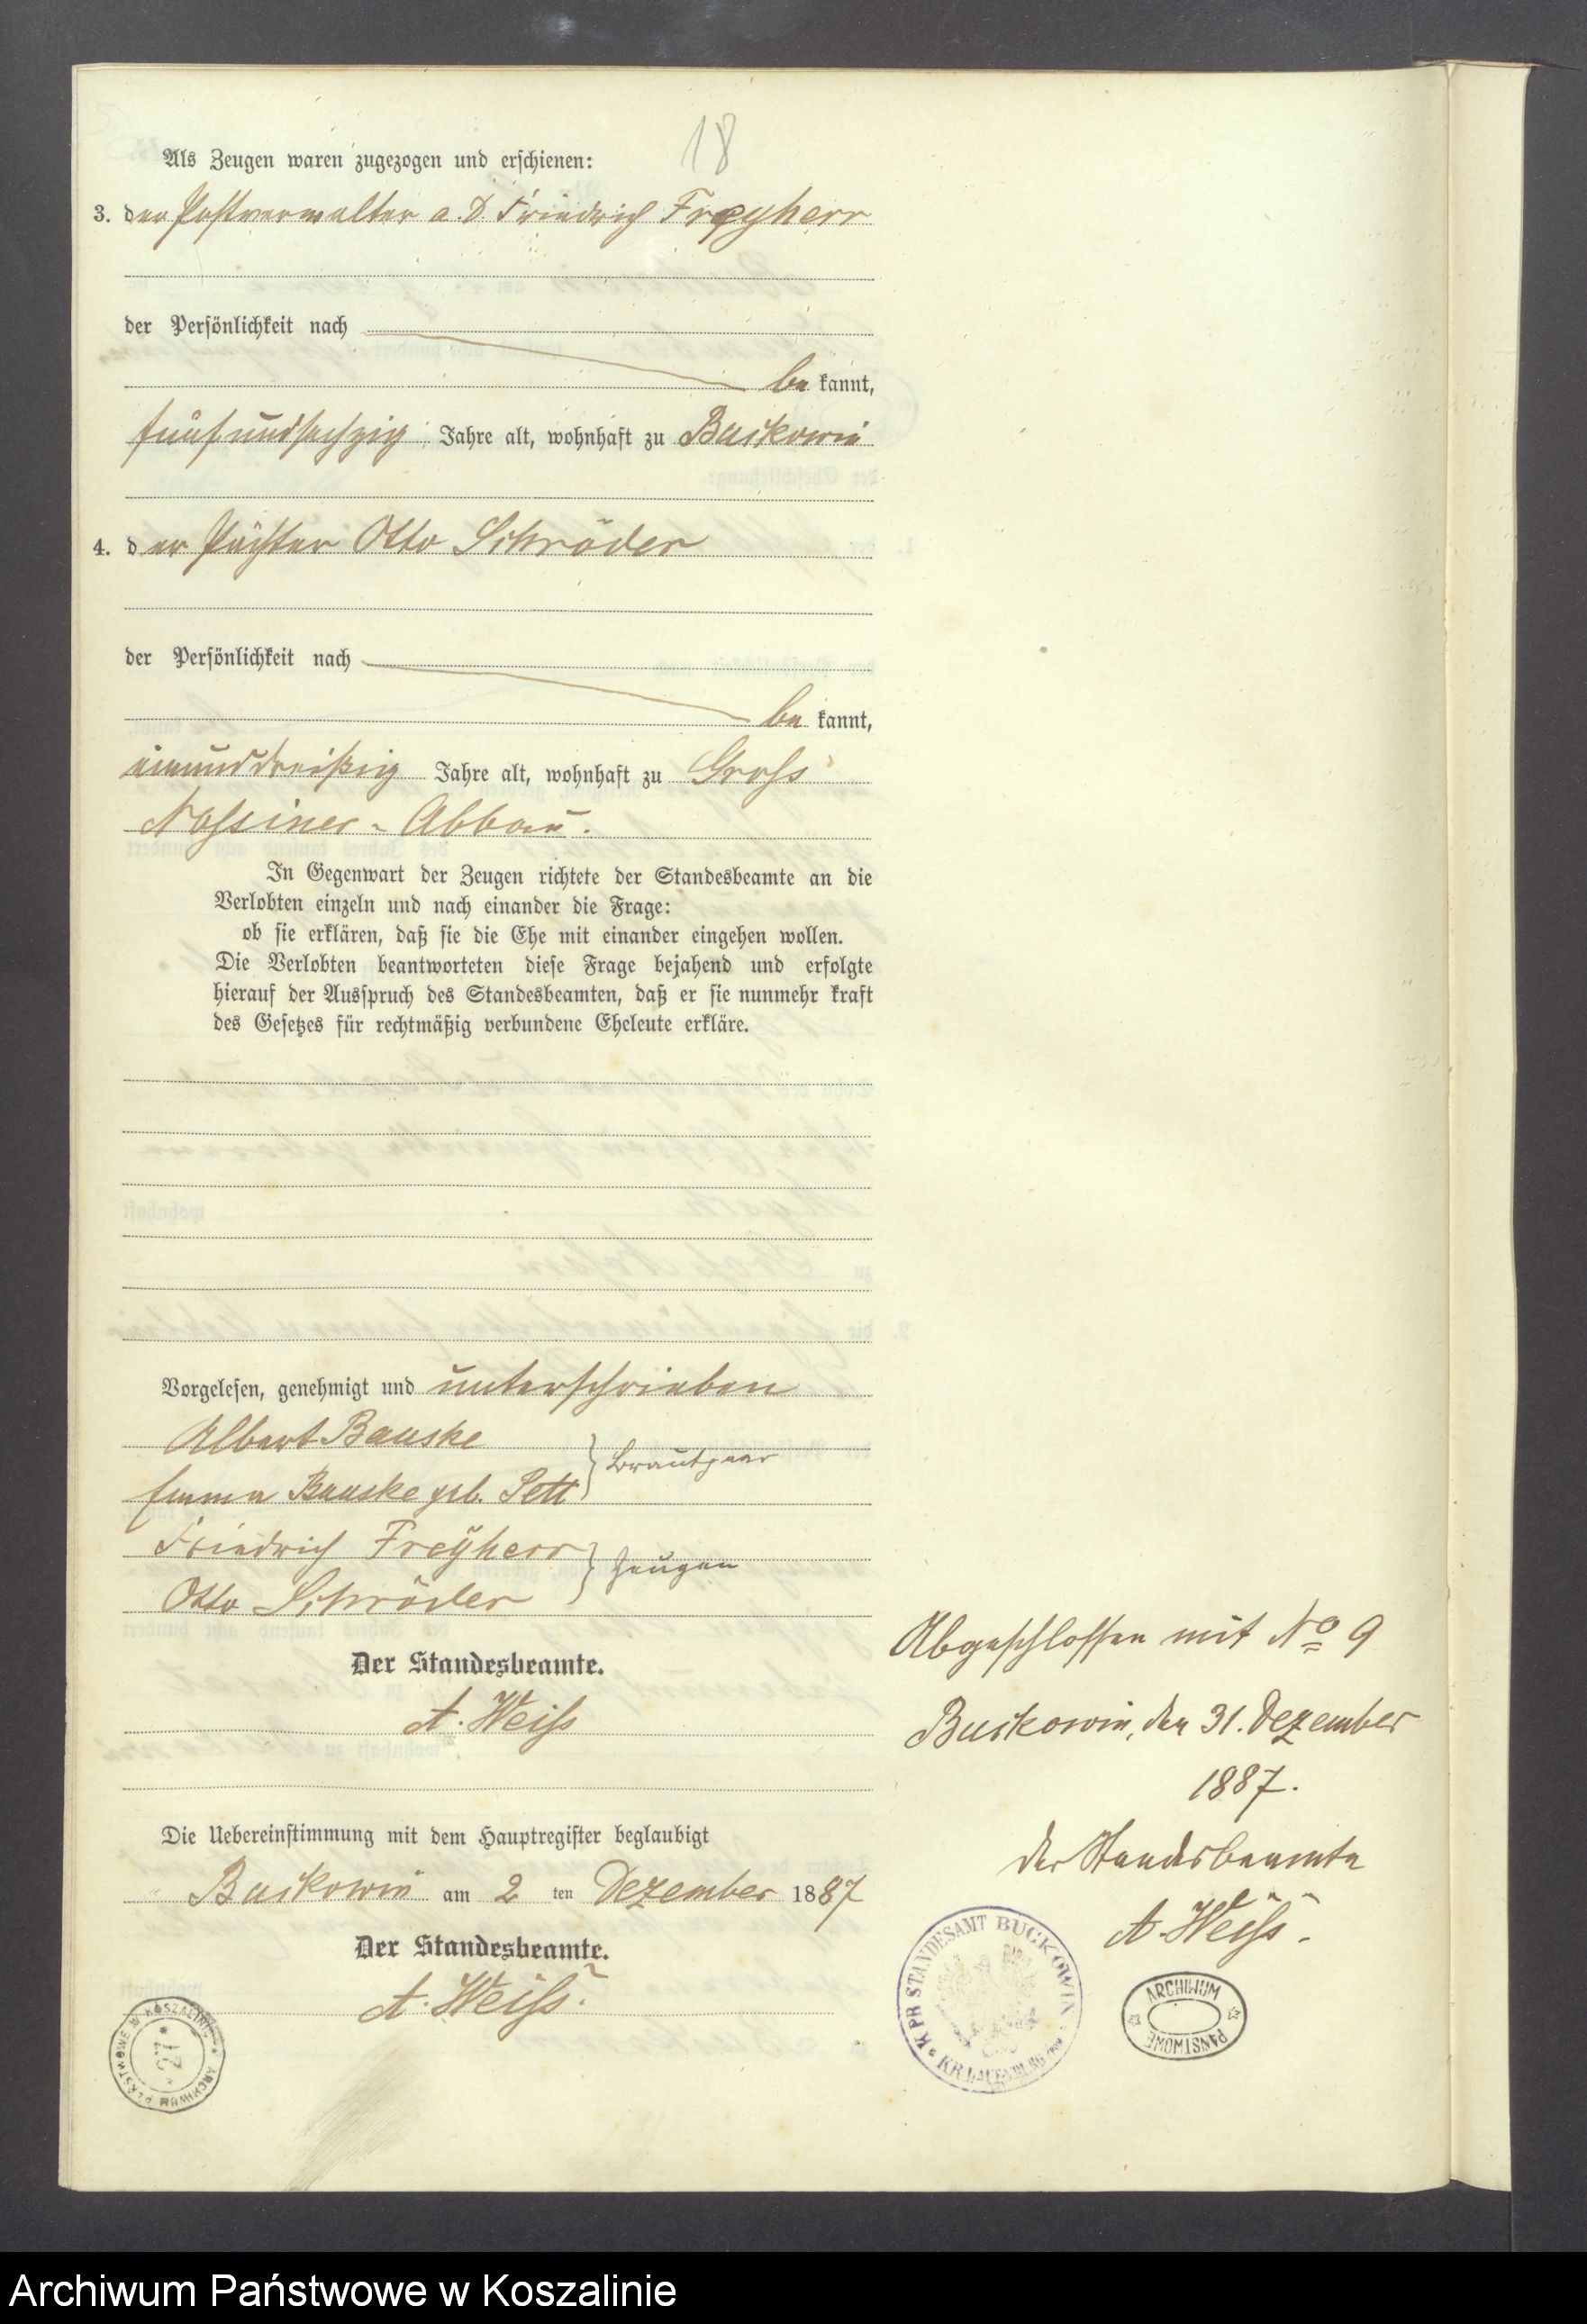 18
Als Zeugen waren zugezogen und erschienen:
3. der Postverwalter a. D. Friedrich Freyherr
der Persönlichkeit nach
be kannt,
fünfundsechzig Jahre alt, wohnhaft zu Buckowin
4. der Pächter Otto Schröder
der Persönlichkeit nach
be kannt,
einunddreißig Jahre alt, wohnhaft zu Gross
Nossiner-Abbau.
In Gegenwart der Zeugen richtete der Standesbeamte an die
Verlobten einzeln und nach einander die Frage:
ob sie erklären, daß sie die Ehe mit einander eingehen wollen.
Die Verlobten beantworteten diese Frage bejahend und erfolgte
hierauf der Ausspruch des Standesbeamten, daß er sie nunmehr kraft
des Gesetzes für rechtmäßig verbundene Eheleute erkläre.
Vorgelesen, genehmigt und unterschrieben
Albert Bauske
Emma Bauske geb. Pett } Brautpaar
Friedrich Freyherr
Otto Schröder } Zeugen
Der Standesbeamte.
A. Weiss
Die Uebereinstimmung mit dem Hauptregister beglaubigt
Buckowin am 2 ten Dezember 1887
Der Standesbeamte.
A. Weiss.
Abgeschlossen mit No 9
Buckowin, den 31. Dezember
1887.
Der Standesbeamte
A. Weiss.
K PR STANDESAMT BUCKOWIN
KR LAUENBURG
ARCHIWUM
PAŃSTWOWE
ARCHIWUM PAŃSTWOWE W KOSZALINIE
27
Archiwum Państwowe w Koszalinie